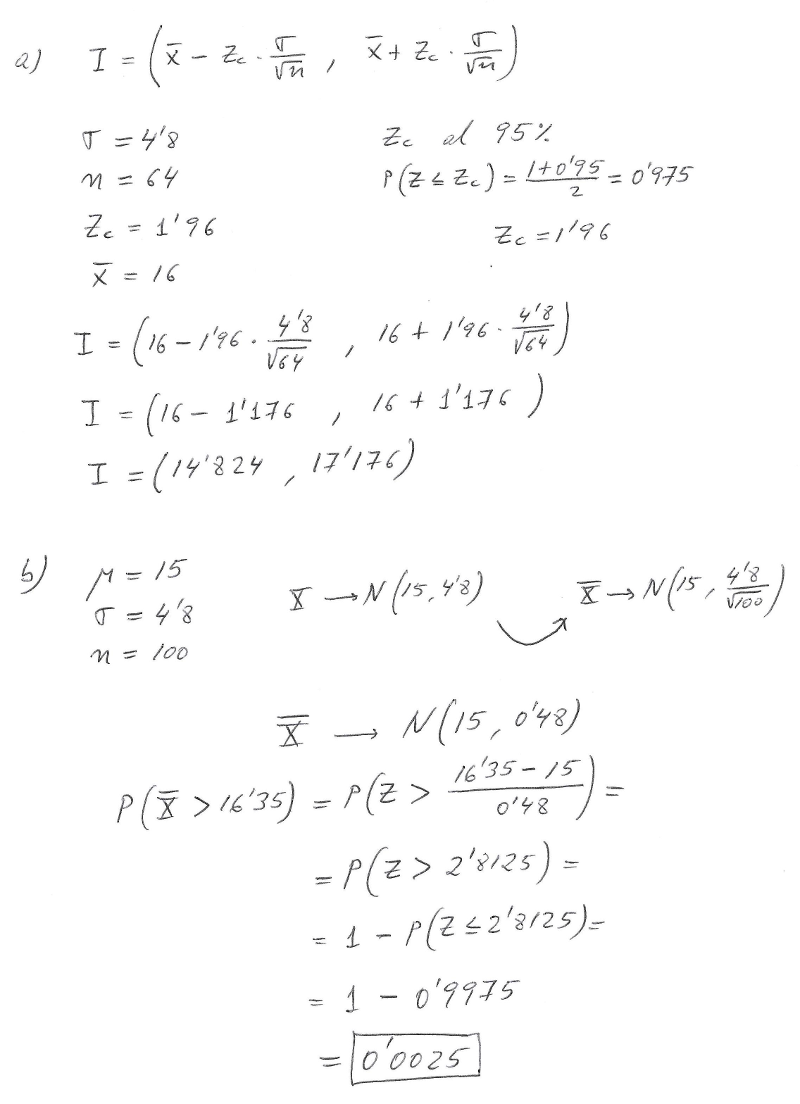 a) I = (x̄ − Zc · σ/√n , x̄ + Zc · σ/√n)
σ = 4'8 Zc al 95%
n = 64 P(Z ≤ Zc) = (1+0'95)/2 = 0'975
Zc = 1'96 Zc = 1'96
x̄ = 16
I = (16 − 1'96 · 4'8/√64 , 16 + 1'96 · 4'8/√64)
I = (16 − 1'176 , 16 + 1'176)
I = (14'824 , 17'176)
b) μ = 15
σ = 4'8 X → N(15, 4'8) X̄ → N(15, 4'8/√100)
n = 100
X̄ → N(15, 0'48)
P(X̄ > 16'35) = P(Z > (16'35 − 15)/0'48) =
= P(Z > 2'8125) =
= 1 − P(Z ≤ 2'8125) =
= 1 − 0'9975
= 0'0025